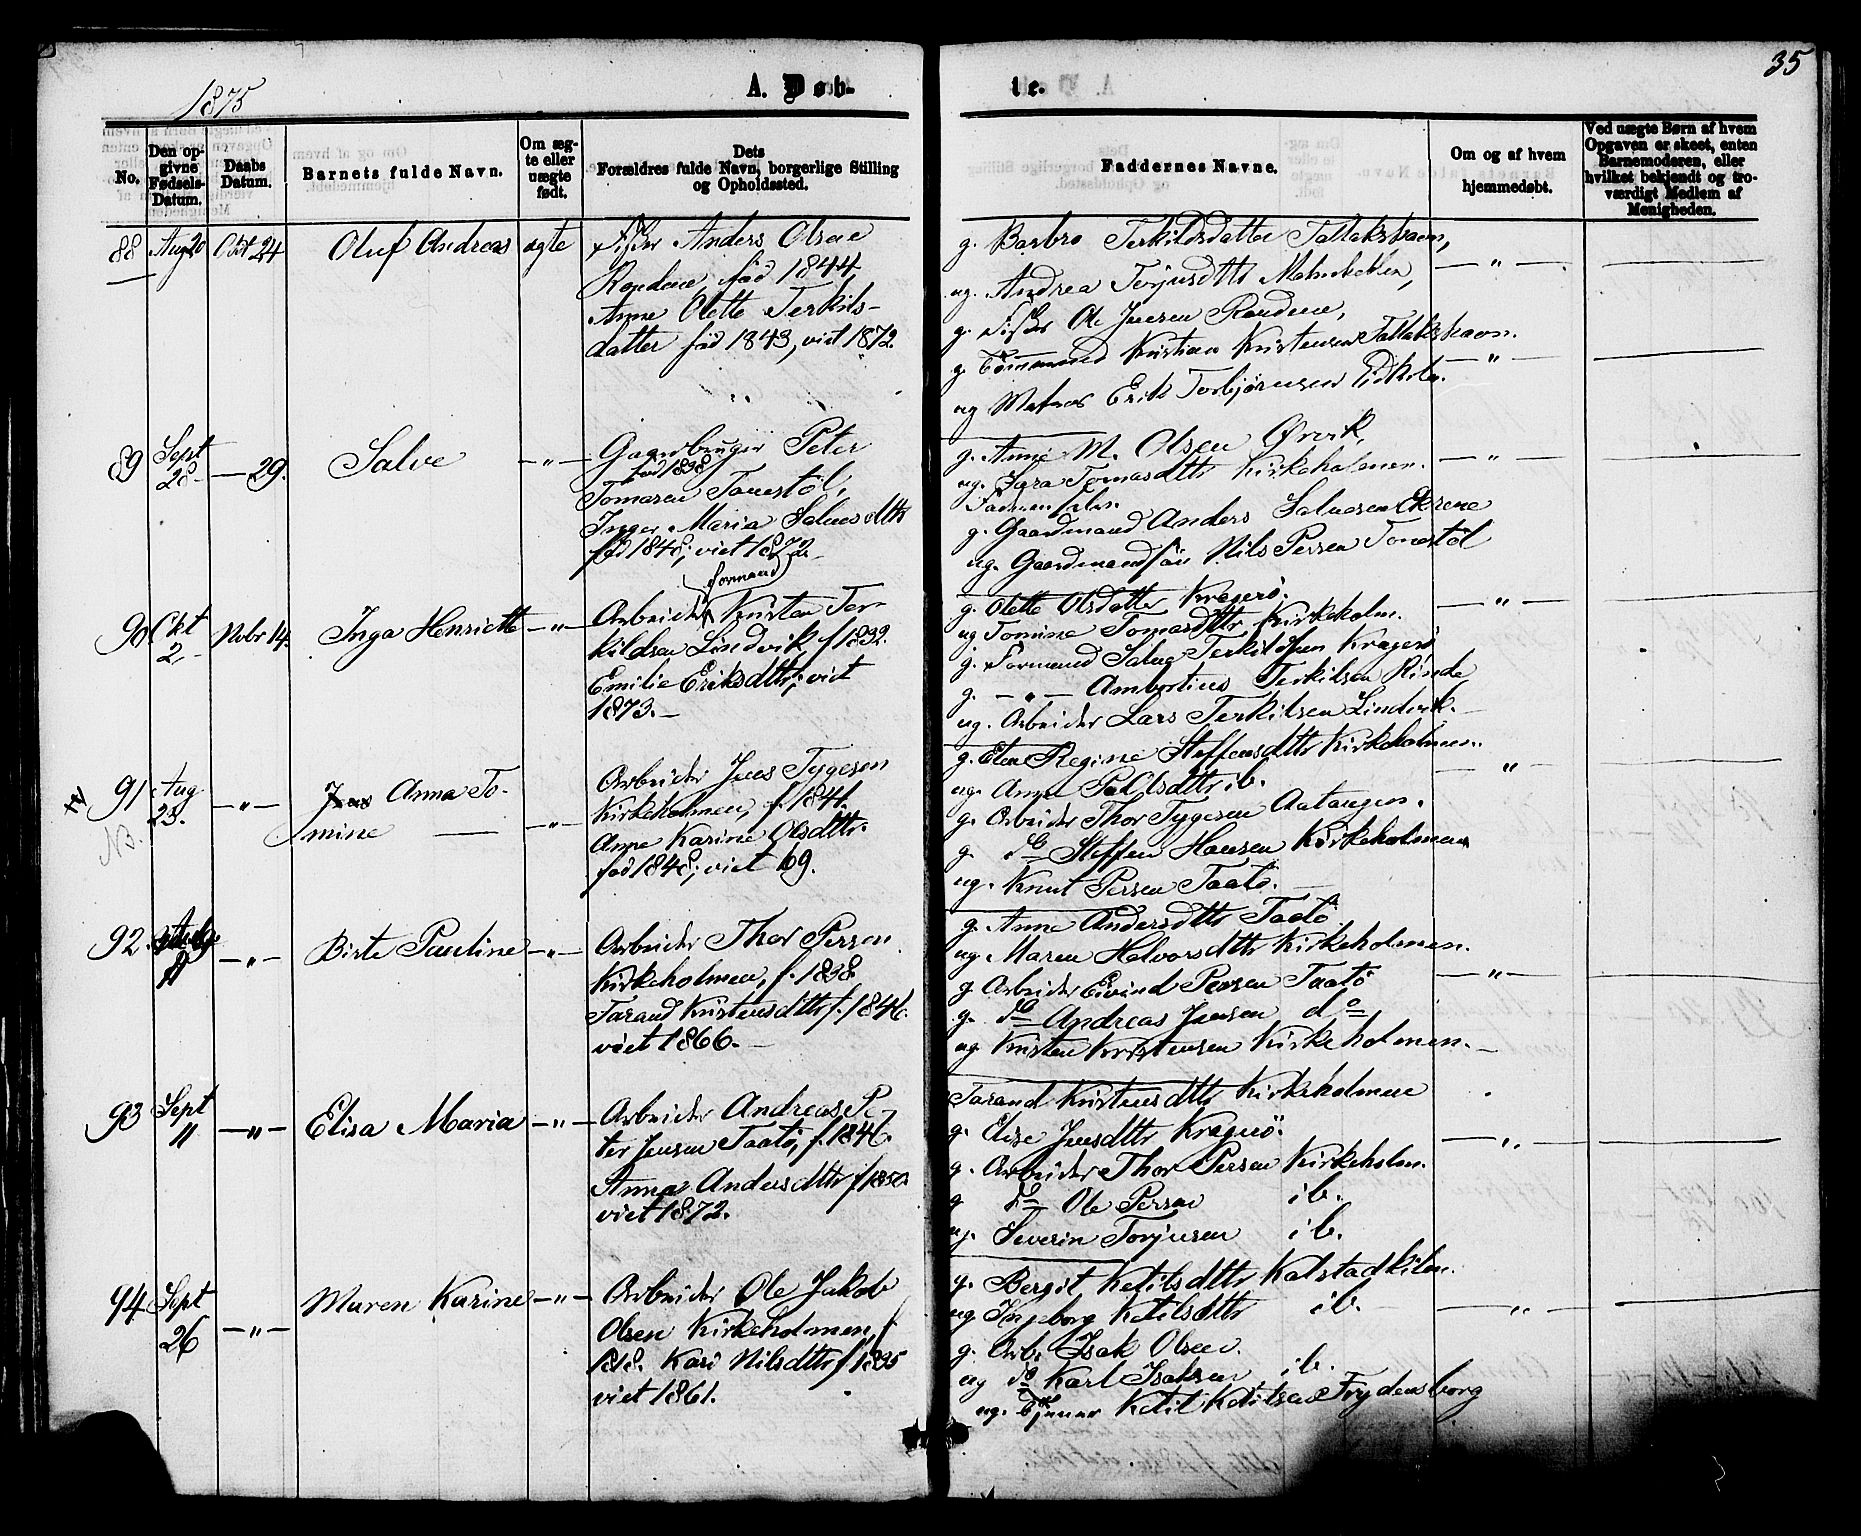 1875
A. Døb-
te.
35
No.
Den op-
givne
Fødsels-
Datum.
Daabs
Datum.
Barnets fulde Navn.
Om æg-
te eller
uægte
født.
Dets
Forældres fulde Navn, borgerlige Stilling
og Opholdssted.
Faddernes Navne.
Om og af hvem
hjemmedøbt.
Ved uægte Børn af hvem
Opgaven er skeet, enten
Barnemoderen, eller
hvilket bekjendt og tro-
værdigt Medlem af
Menigheden.
88 Aug 20 Okt 24 Oluf Andreas ægte
Fisker Anders Olsen
født 1844,
Anne Olette Terkils-
datter föd 1843, viet 1872.
g. Barbro Terkildsdatter
ug. Andrea Terjusdttr
g. Fisker Ole Jensen
g. Kristian Kristensen
ug Matros Erik Torbjørnsen
— " —
— " —
89 Sept 28 — 29. Salve — " —
Gaardbruger Peter
föd 1838
Tomasen Tonestöl,
Inger Maria Salvesdttr
föd 1848, viet 1872.
g. Anne M. Olsen Ørvik,
ug. Sara Tomasdttr Kirkeholmen.
Faderen selv.
g. Gaardmand Anders Salvesen Ekrene
ug. Gaardmandssön Nils Persen Tonestöl
— " —
90 Okt 2 Novbr 14. Inga Henriette — " —
formand
Arbeider Kristen Ter-
kildsen Lindvik, f. 1832.
Emilie Eriksdttr; viet
1873. —
g. Olette Olsdatter Kragerö.
ug Tomine Tomasdttr Kirkeholm.
g. Formand Salve Terkildsen Kragerö
g. — " — Ambortius Terkilsen Rinde,
ug. Arbeider Lars Terkilsen Lindvik. —
— " —
91 Aug 23. — " — Anna To-
mine — " —
NB.
Arbeider Jens Tygesen
Kirkeholmen, f. 1841.
Anne Karine Olsdttr.
föd 1848; viet 69.
g. Elen Regine Steffensdttr Kirkeholmen.
ug. Anne Palsdttr ib.
g. Arbeider Thor Tygesen Aatangen.
g do Steffen Hansen Kirkeholmen
ug. Knut Persen Taatö. —
— " —
92. Aug. — " — Birte Pauline — " —
Arbeider Thor Persen
Kirkeholmen, f. 1838
Tarand Kristensdttr f. 1846.
viet 1866. —
g. Anne Andersdttr Taatö
ug Maren Halvorsdttr Kirkeholmen.
g. Arbeider Eivind Persen Taatö
g. do Andreas Jensen do
ug Kristen Kristensen Kirkeholmen. —
— " —
93 Sept 11 — " — Elisa Maria — " —
Arbeider Andreas Pe-
ter Jensen Taatö, f. 1846.
Anna Andersdttr f 1850
viet 1872.
Tarand Kristensdttr Kirkeholmen
g. Elise Jensdttr Kragerö.
g. Arbeider Thor Persen Kirkeholm.
g do Ole Persen ib.
ug. Severin Torjusen ib.
— " —
94 Sept 26 — " — Maren Karine — " —
Arbeider Ole Jakob
Olsen Kirkeholmen, f
Kari Nilsdttr f 1835
viet 1861.
g. Bergit Ketilsdttr Kalstadkilen.
ug Ingeborg Ketilsdttr ib.
g. Arb. Isak Olsen.
ug do Karl Isaksen ib.
ug. Tjener Ketil Ketilsen Frydensborg
— " —